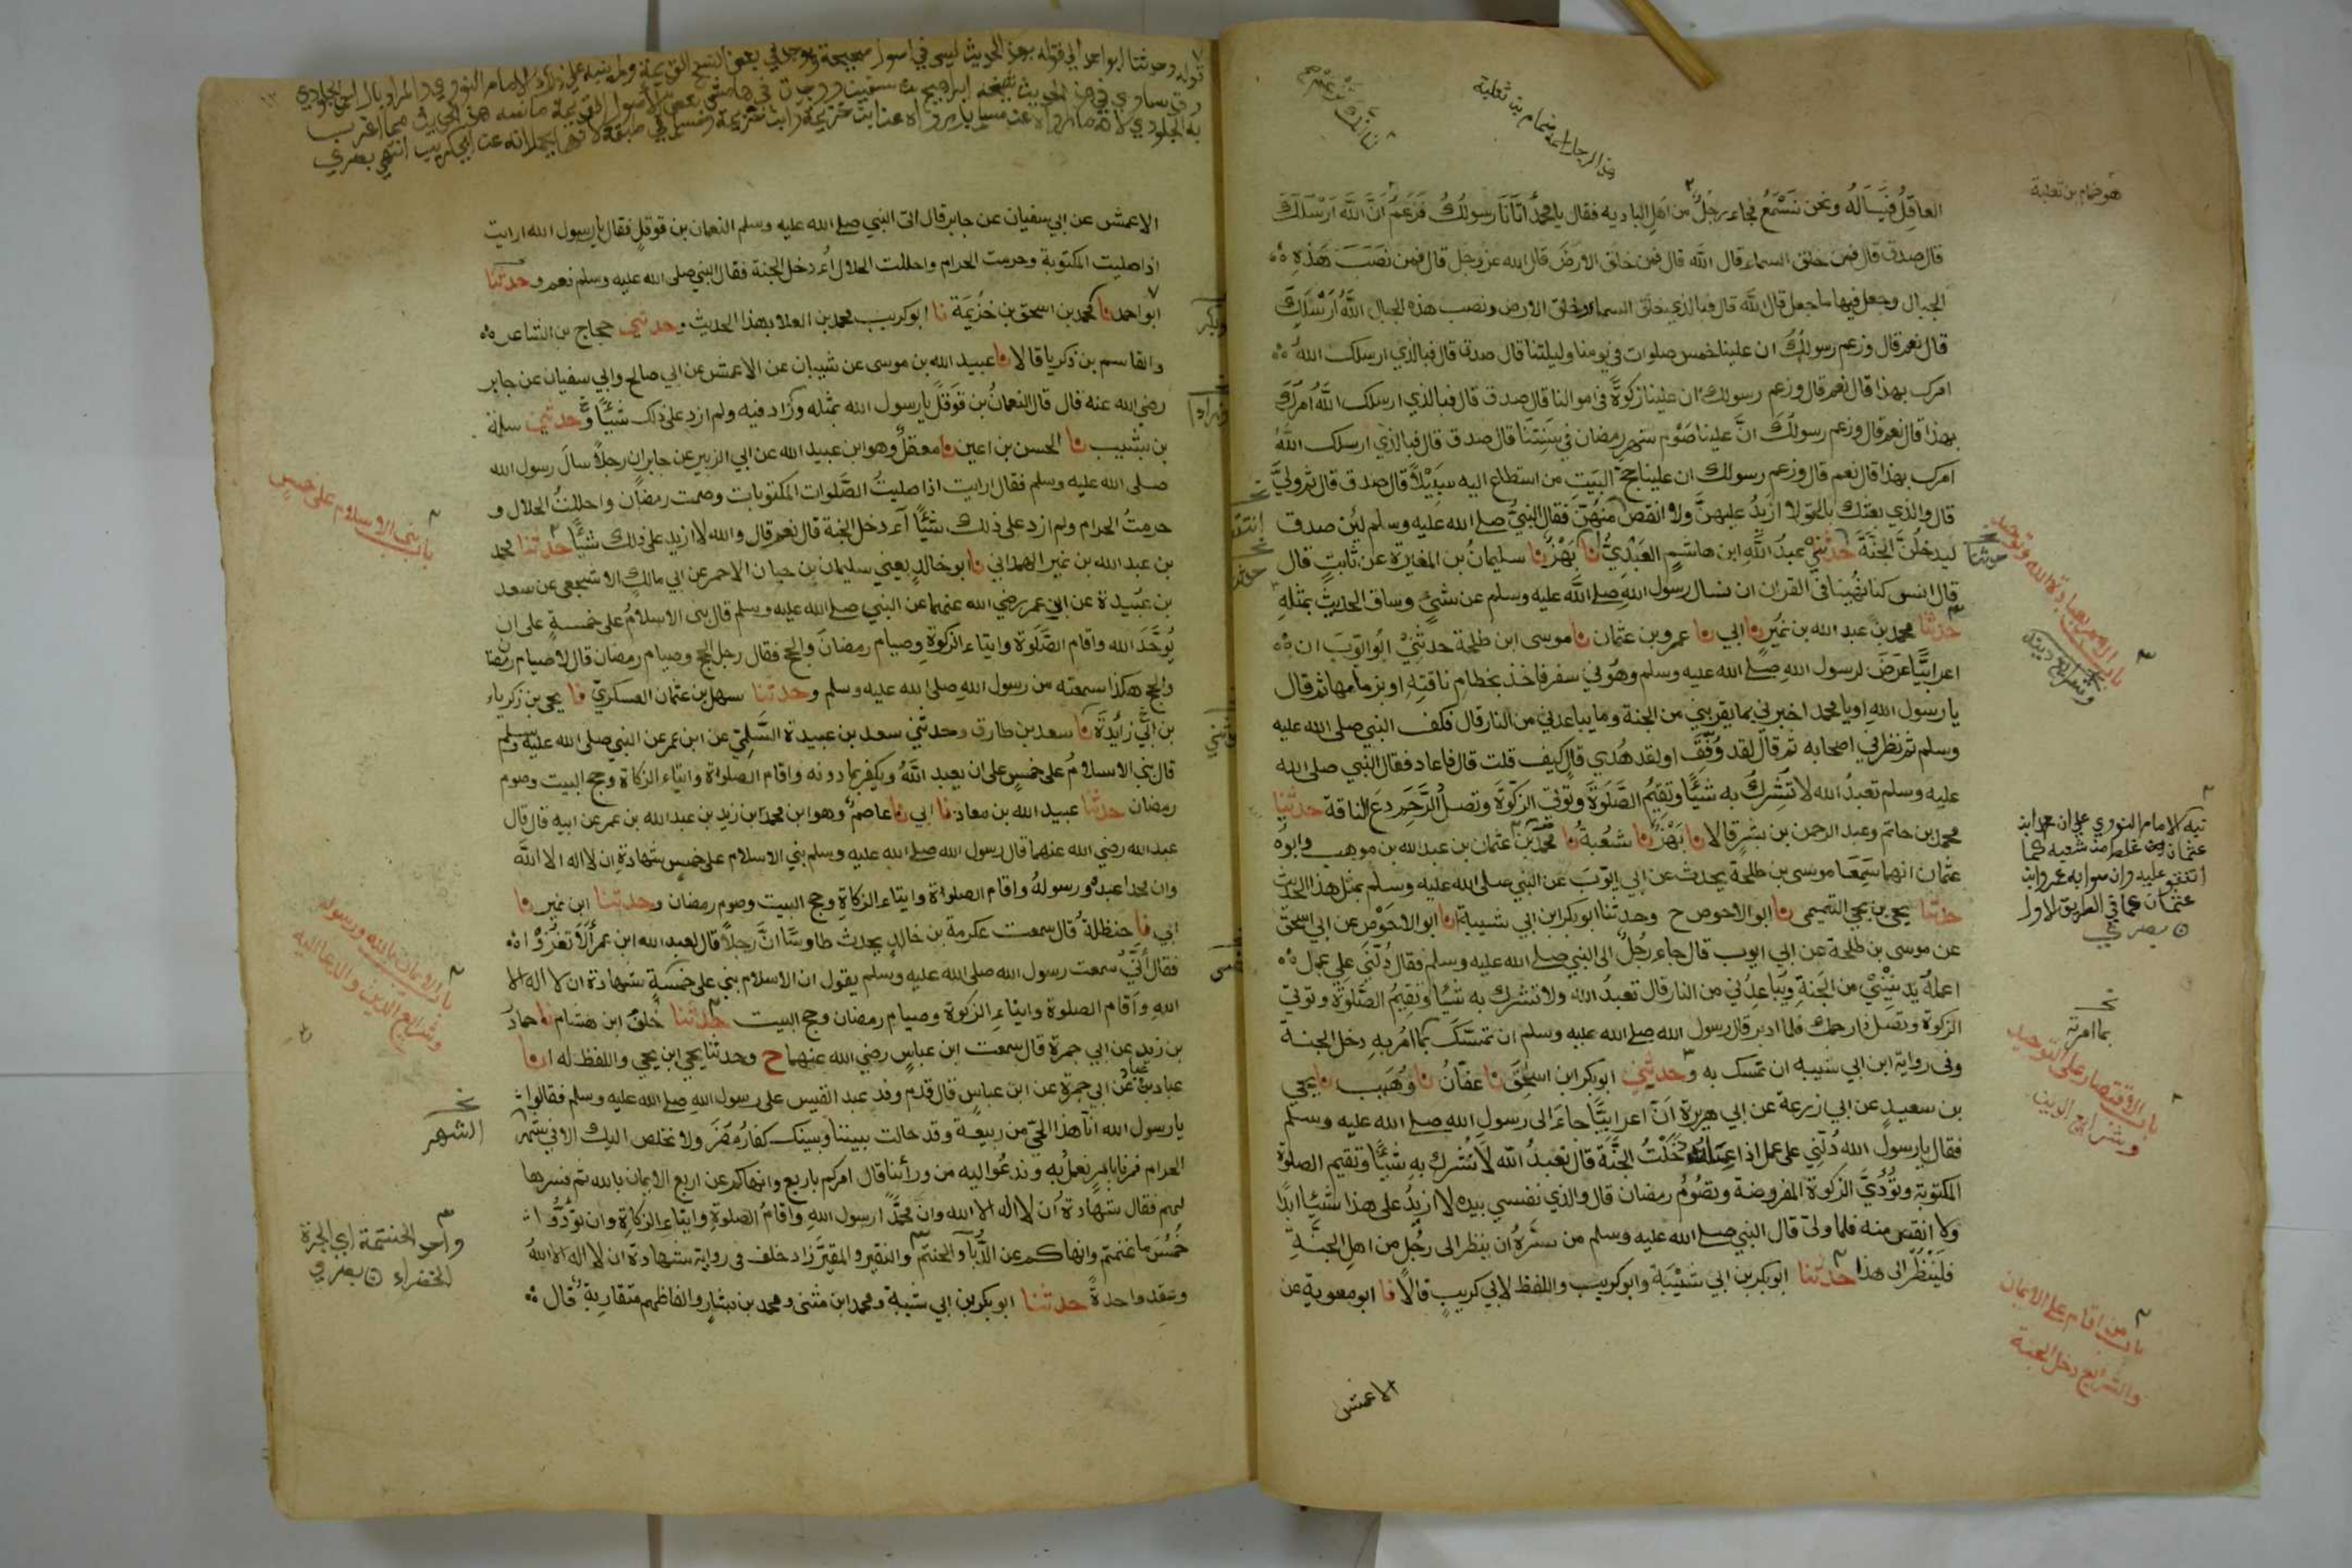 هو ضمام بن ثعلبة
هذا الرجل اسمه ضمام بن ثعلبة
العاقِلُ فيَسَالَهُ ونحن نَسْمَعُ فجاء رجلٌ من اَهلِ الباديه فقال يا محمدُ اَتَانَا رسولُكَ فزعَمَ اَنَّ اللّٰهَ اَرْسَلَكَ
قال صدق قال فمن خلق السماء قال اللّٰه قال فمن خلق الارضَ قال الله عز وجل قال فمن نَصَبَ هَذِهِ
الجبال وجعل فيها ما جعل قال اللّٰه قال فبالذي خلق السماء وخلق الارض ونصب هذه الجبال اللّٰهُ اَرْسَلَكَ
قال نعم قال وزعم رسولُكَ ان علينا خمس صلوات في يومنا وليلتنا قال صدق قال فبالذي ارسلك اللّٰهُ
امرك بهذا قال نعم قال وزعم رسولك ان علينا زكوةً في اموالنا قال صدق قال فبالذي ارسلك اللّٰهُ اَمَرَكَ
بهذا قال نعم قال وزعم رسولُكَ انَّ علينا صَوْم شهر رمضان في سَنتِنا قال صدق قال فبالذي ارسلك اللّٰهُ
اَمرك بهذا قال نعم قال وزعم رسولك ان علينا حجّ البَيتِ من استطاع اليه سَبِيْلًا قال صدق قال ثم ولّيَ
قال والذي بعثك بالحق لا ازيدُ عليهنَّ ولا انقص مِنْهُنَّ فقال النبيُّ صلى الله عليه وسلم لئن صدق
ليدخلَنَّ الجنَّةَ حدثني عبدُ اللّٰهِ ابن هاشمٍ العَبْدِيُّ نا بَهْزٌ نا سليمانُ بن المغيرة عن ثابتٍ قال
قال انس كنا نُهينا في القران ان نسال رسول الله صلى اللّٰه عليه وسلم عن شئٍ وساق الحديثَ بمثلِهِ
حدثنا محمد بن عبد الله بن نُمَيرٍ نا ابي نا عمرو بن عثمان نا موسى ابن طلحة حدثنيْ ابُو ايّوبَ ان
اعرابيًّا عرَضَ لرسول اللهِ صلى الله عليه وسلم وهُو في سفر فاخذ بخطام ناقتِهِ او بزمامها ثم قال
يا رسول اللهِ او يا محمد اخبرني بما يقربني من الجنة وما يباعدني من النار قال فكف النبي صلى الله عليه
وسلم ثم نظر في اصحابه ثم قال لقد وُفِّقَ او لقد هُدي قال كيف قلت قال فاعاد فقال النبي صلى الله
عليه وسلم تعبدُ الله لا تُشْرِكُ به شيئًا وتقيمُ الصَّلوَةَ وتُوتي الزكوَةَ وتصلُ الرَّحِمَ دعِ الناقة حدثنيا
محمد بن حاتم وعبد الرحمن بن بشرٍ قالا نا بَهْزٌ نا شُعْبةُ نا محمد بن عثمان بن عبد الله بن موهب وابوهُ
عثمان انهما سَمِعَا موسى بن طلحة يحدث عن ابي ايّوبَ عن النبي صلى الله عليه وسلم بمثل هذا الحديث
حدثنا يحيى بن يحيى التميمي نا ابو الاحوص ح وحدثنا ابو بكر ابن ابي شيبة نا ابو الاحْوَصِ عن ابي اسحق
عن موسى بن طلحة عن ابي ايوب قال جاء رجُلٌ الى النبي صلى الله عليه وسلم فقال دُلَّنِي على عمل
اعملُهُ يُدنِيْنِيْ من الجنةِ ويُباعِدُني من النار قال تعبدُ الله ولا تشرك به شيئًا وتُقِيمُ الصَّلوَةَ وتوتي
الزكوة وتصل ذا رحمك فلما ادبر قال رسول الله صلى الله عليه وسلم ان تمَسَّكَ بما اُمرَ به دخل الجنة
وفي رواية ابن ابي شيبه ان تمسك به وحدثني ابو بكر ابن اسحق نا عفانُ نا وُهَيب نا يحيى
بن سعيدٍ عن ابي زرعة عن ابي هريرة اَنّ اعرابيًّا جاءَ الى رسول الله صلى الله عليه وسلم
فقال يا رسول الله دُلَّنِي على عمل اذا عملته دَخَلْتُ الجنَّة قال تعبدُ الله لا تُشرك بهِ شيئًا وتقيم الصلوة
المكتوبة وتُؤدّي الزكوةَ المفروضة وتصُومُ رمضان قال والذي نفسي بيده لا ازيدُ على هذا شيئا ابدًا
ولا انقص منه فلما ولى قال النبي صلى الله عليه وسلم من سَرَّهُ ان ينظر الى رجُلٍ من اهل الجنَّةِ
فَلَيَنْظُرْ الى هذا حدثنا ابو بكر بن ابي شَيْبَةَ وابو كريب واللفظ لابي كريبٍ قالا نا ابو معوية عن
الاعمش
حدثنا
باب الامر بعبادة الله وتوحيده
وشرائع دينه
نبه الامام النووي على ان محمد ابن
عثمان غلط من شعبه كما
اتفقوا عليه وان صوابه عمرو ابن
عثمان كما في الطريق الاول
بصري
بما امر به
باب الاقتصار على التوحيد
وشرائع الدين
باب من اقام على الايمان
والشرائع دخل الجنة
قوله وحدثنا ابو احمد الى قوله بهذا الحديث ليس في اصول صحيحة ويوجد في بعض النسخ القديمة ولم ينبه على ذلك الامام النووي والمراد بابي احمد الجلودي
الاعمش عن ابي سفيان عن جابر قال اتى النبي صلى الله عليه وسلم النعمان بن قوقلٍ فقال يا رسول الله ارايت
اذا صليت المكتوبة وحرمت الحرام واحللت الحلال أادخل الجنة فقال النبي صلى الله عليه وسلم نعم وحدثنا
ابو احمد نا محمد بن اسحق بن خُزيمَة نا ابو كريب محمد بن العلا بهذا الحديث وحدثني حجاج بن الشاعر
والقاسم بن زكريا قالا نا عبيد الله بن موسى عن شيبان عن الاعمش عن ابي صالح وابي سفيان عن جابر
رضي الله عنه قال قال النعمانُ بن قَوقَلٍ يا رسول الله بمثله وزاد فيه ولم ازد على ذلك شيئًا وحدثني سلمة
بن شبيب نا الحسن بن اعين نا معقلٌ وهو ابن عبيد الله عن ابي الزبير عن جابر ان رجلاً سالَ رسول الله
صلى الله عليه وسلم فقال ارايت اذا صليتُ الصَّلوات المكتوبات وصمت رمضان واحللتُ الحلال و
حرمتُ الحرام ولم ازد على ذلك شيئًا أءدخل الجنة قال نعم قال والله لا ازيد على ذلك شيئًا حدثنا محمد
بن عبد الله بن نمير الهمداني نا ابو خالدٍ يعني سليمان بن حيان الاحمر عن ابي مالكٍ الاشجعي عن سعد
بن عُبيدة عن ابن عمر رضي الله عنهما عن النبي صلى الله عليه وسلم قال بني الاسلامُ على خمسةٍ على ان
يُوَحَّدَ الله واقام الصَّلوة وايتاء الزكوةِ وصيام رمضانَ والحج فقال رجل الحج وصيام رمضان قال لا صيام رمضان
والحج هكذا سمعته من رسول الله صلى الله عليه وسلم وحدثنا سهل بن عثمان العسكريّ نا يحيى بن زكرياء
بن ابي زائدَةَ نا سعد بن طارق وحدثني سعد بن عبيدة السُّلميّ عن ابن عمر عن النبي صلى الله عليه وسلم
قال بني الاسلامُ على خمسٍ على ان يعبد اللّٰهُ ويكفر بما دونه واقام الصلواة وايتاء الزكاة وحج البيت وصوم
رمضان حدثنا عبيد الله بن معاذ نا ابي نا عاصمٌ وهو ابن محمد ابن زيد بن عبد الله بن عمر عن ابيه قال قال
عبد الله رضي الله عنهما قال رسول الله صلى الله عليه وسلم بني الاسلام على خمسٍ شهادةِ ان لا اله الا اللّٰه
وان محمدا عبده ورسولهُ واقام الصلواة وايتاء الزكاةِ وحج البيت وصوم رمضان وحدثنا ابن نمير نا
ابي نا حنظلةُ قال سمعت عكرمة بن خالدٍ يحدث طاوسًا انَّ رجلاً قال لعبد الله ابن عمر ألَا تَغْزُوْا
فقال اني سمعت رسول الله صلى الله عليه وسلم يقول ان الاسلام بني على خمسةٍ شهادة ان لا اله الا
اللهِ واقام الصلوة وايتاءِ الزكوة وصيام رمضان وحج البيت حدثنا خلفُ ابن هشام نا حمادُ
بن زيد عن ابي جمرة قال سمعت ابن عباسٍ رضي الله عنهما ح وحدثنا يحيى ابن يحيى واللفظ له انا
عباد بن عباد عن ابي جمرة عن ابن عباسٍ قال قدم وفد عبد القيس على رسول الله صلى الله عليه وسلم فقالوا
يا رسول الله انا هذا الحيّ من ربيعة وقد حالت بيننا وبينك كفارُ مُضَرَ ولا نخلص اليك الا في شهر
الحرام فمرنا بامرٍ نعملُ به وندعُوا اليه من ورأنا قال امركم باربع وانهاكم عن اربع الايمان بالله ثم فسرها
لهم فقال شهادة اَن لا اله الا الله وان محمدًا رسول اللهِ واقامُ الصلوةِ وايتاءِ الزكاةِ وان تؤدُّوا
خُمُسَ ما غنمتم وانهاكم عن الدُّبآ والحنتم والنقير والمقيّر زاد خلف في روايته شهادة ان لا اله الا اللهُ
وعقد واحدةً حدثنا ابو بكر بن ابي شيبة ومحمد ابن مثنى ومحمد بن بشارٍ والفاظهم متقاربةٌ قال
باب بني الاسلام على خمسٍ
باب الايمان بالله ورسوله
وشرائع الدين والدعا اليه
الشهر
واحد الحنتم حنتمة اي الجرة
الخضراء بصري